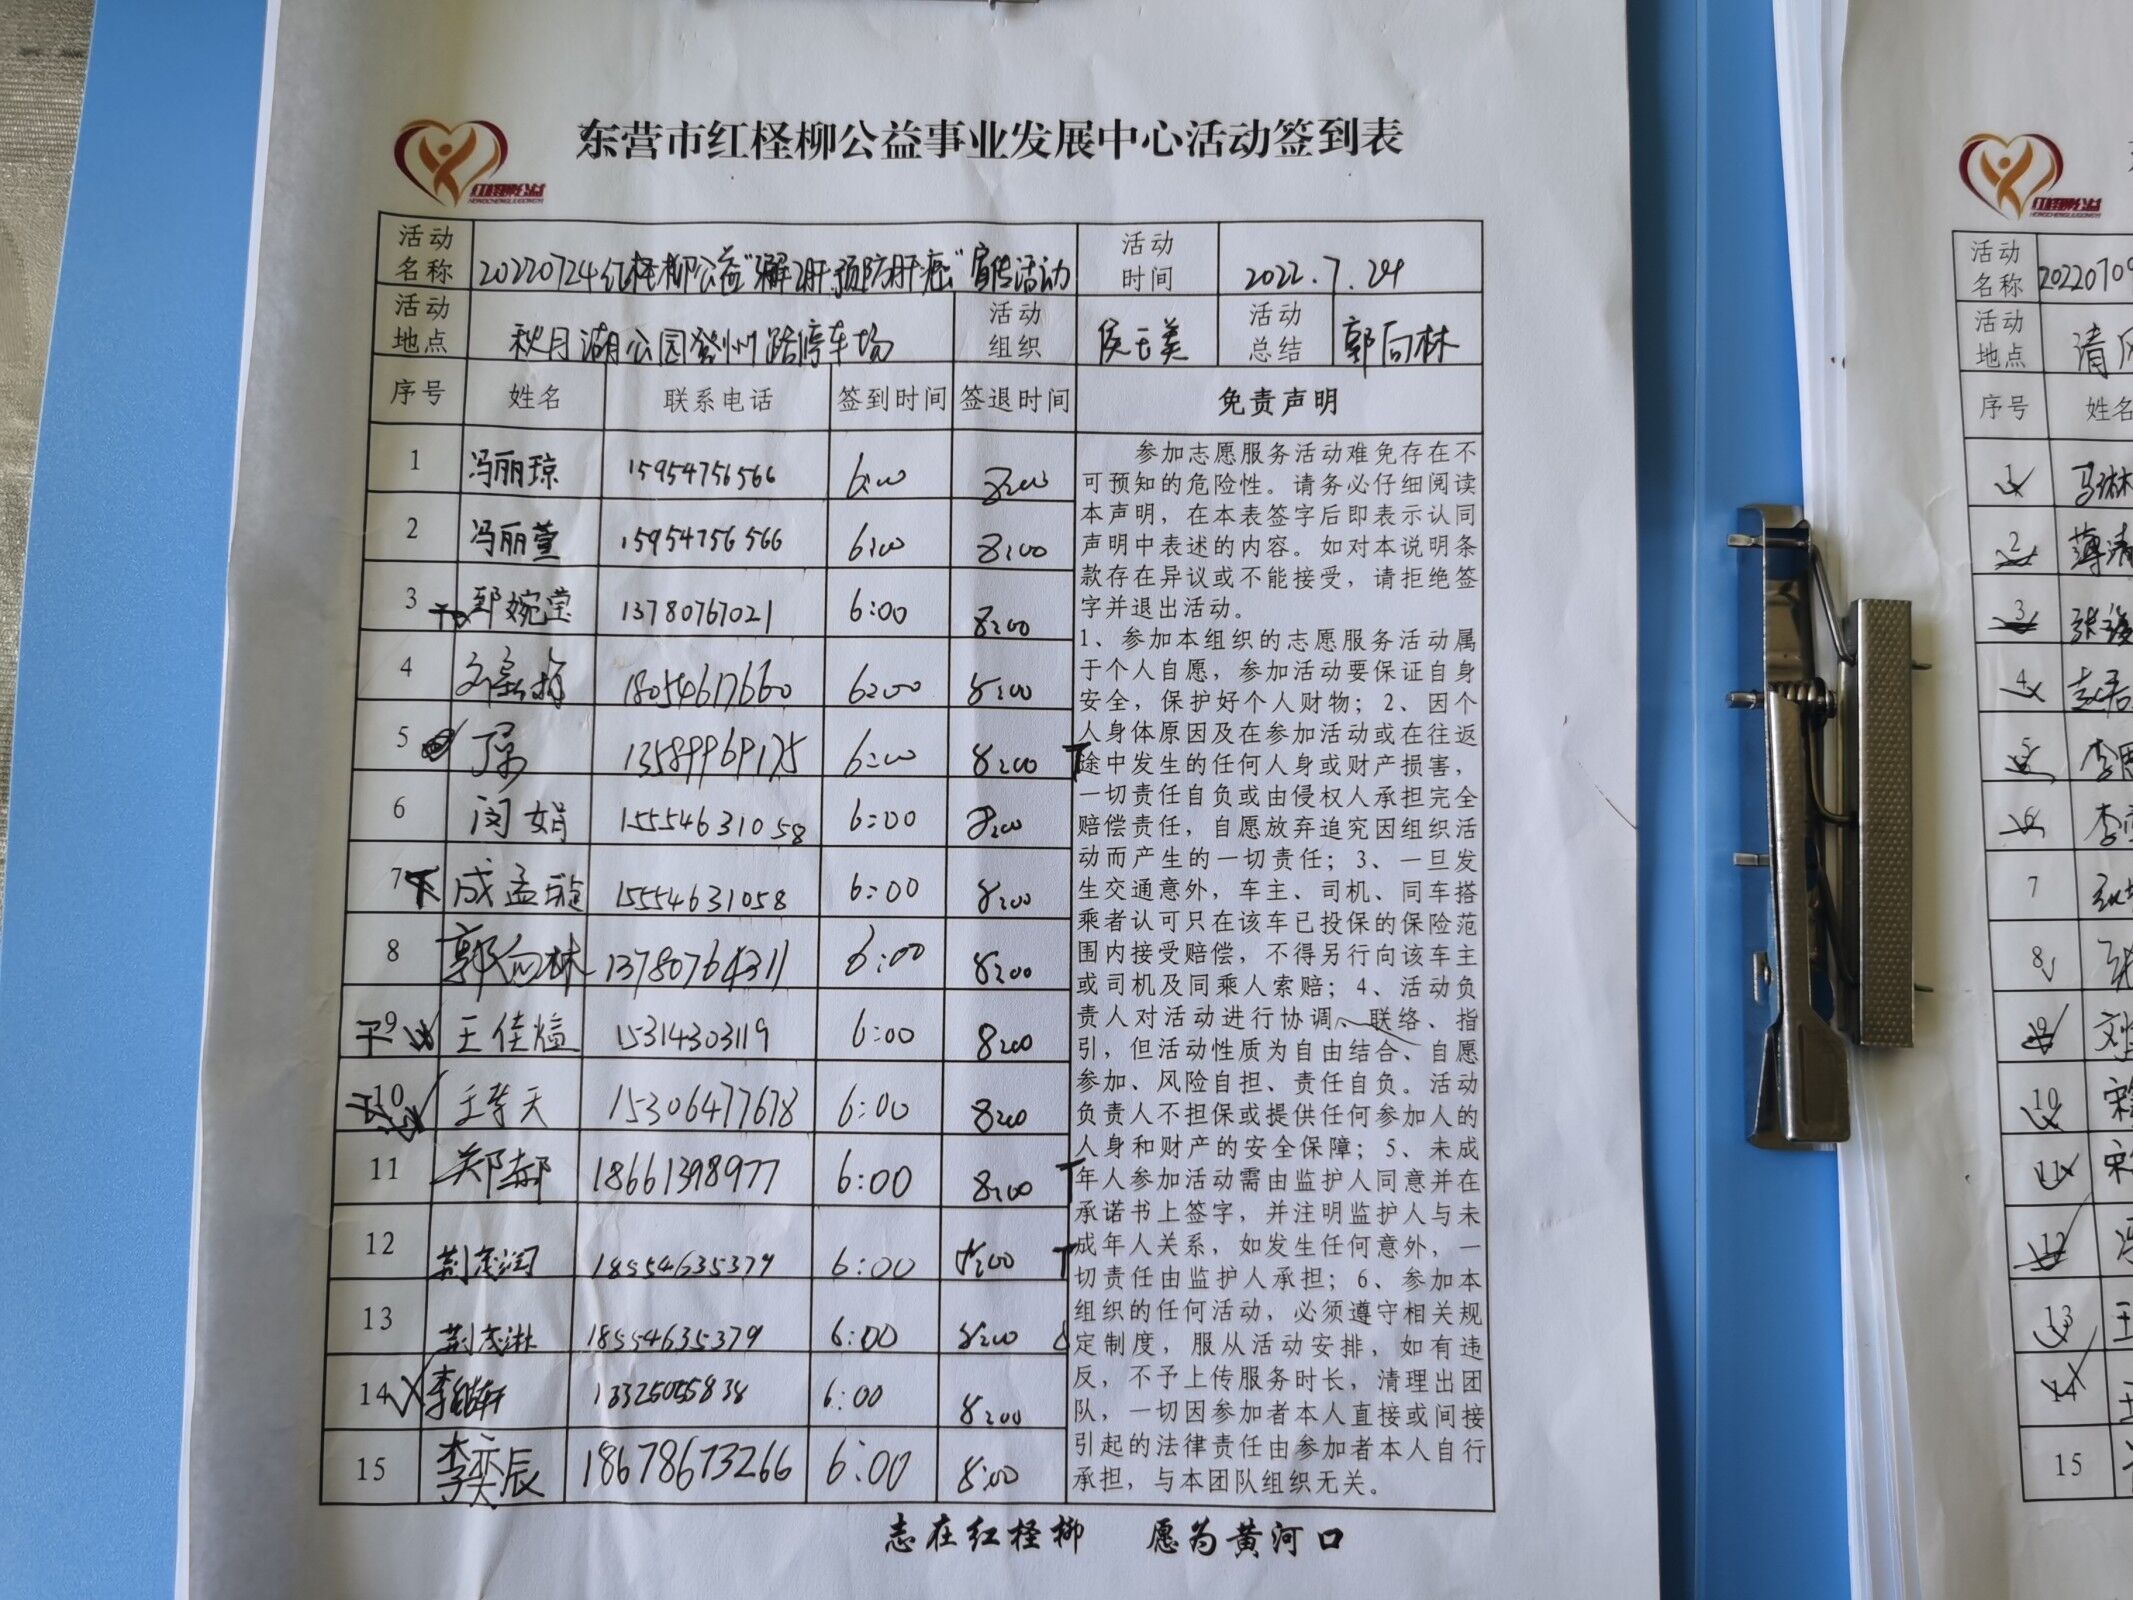 东营市红柽柳公益事业发展中心活动签到表
红柽柳公益
HONGCHENGLIUGONGYI
活动名称 20220724红柽柳公益“ 肝预防肝癌”宣传活动 活动时间 2022.7.24
活动地点 秋月湖公园登州路停车场 活动组织 侯玉美 活动总结 郭向林
序号 姓名 联系电话 签到时间 签退时间 免责声明
1 冯丽琼 15954756566 6:00 8:00
2 冯丽萱 15954756566 6:00 8:00
3 郅婉莹 13780767021 6:00 8:00
4 18054617660 6:00 8:00
5 13589969175 6:00 8:00 T
6 闵娟 15554631058 6:00 8:00
7 T 成孟璇 15554631058 6:00 8:00
8 郭向林 13780764311 6:00 8:00
9 王佳煊 15314303119 6:00 8:00
10 王孝天 15306477678 6:00 8:00
11 郑赫 18661398977 6:00 8:00 T
12 荆茂润 18554635379 6:00 8:00 T
13 荆茂淋 18554635379 6:00 8:00
14 李 轩 6:00 8:00
15 李奕辰 18678673266 6:00 8:00
参加志愿服务活动难免存在不
可预知的危险性。请务必仔细阅读
本声明，在本表签字后即表示认同
声明中表述的内容。如对本说明条
款存在异议或不能接受，请拒绝签
字并退出活动。
1、参加本组织的志愿服务活动属
于个人自愿，参加活动要保证自身
安全，保护好个人财物；2、因个
人身体原因及在参加活动或在往返
途中发生的任何人身或财产损害，
一切责任自负或由侵权人承担完全
赔偿责任，自愿放弃追究因组织活
动而产生的一切责任；3、一旦发
生交通意外，车主、司机、同车搭
乘者认可只在该车已投保的保险范
围内接受赔偿，不得另行向该车主
或司机及同乘人索赔；4、活动负
责人对活动进行协调、联络、指
引，但活动性质为自由结合、自愿
参加、风险自担、责任自负。活动
负责人不担保或提供任何参加人的
人身和财产的安全保障；5、未成
年人参加活动需由监护人同意并在
承诺书上签字，并注明监护人与未
成年人关系，如发生任何意外，一
切责任由监护人承担；6、参加本
组织的任何活动，必须遵守相关规
定制度，服从活动安排，如有违
反，不予上传服务时长，清理出团
队，一切因参加者本人直接或间接
引起的法律责任由参加者本人自行
承担，与本团队组织无关。
志在红柽柳 愿为黄河口
红柽柳公益
HONGCHENGLIUGONGYI
活动名称 2022070
活动地点 清风
序号 姓名
1
2 薄清
3 张
4 赵君
5 李
6 李
7
8 张
9 刘
10 宋
11 宋
12 冯
13 王
14 王
15